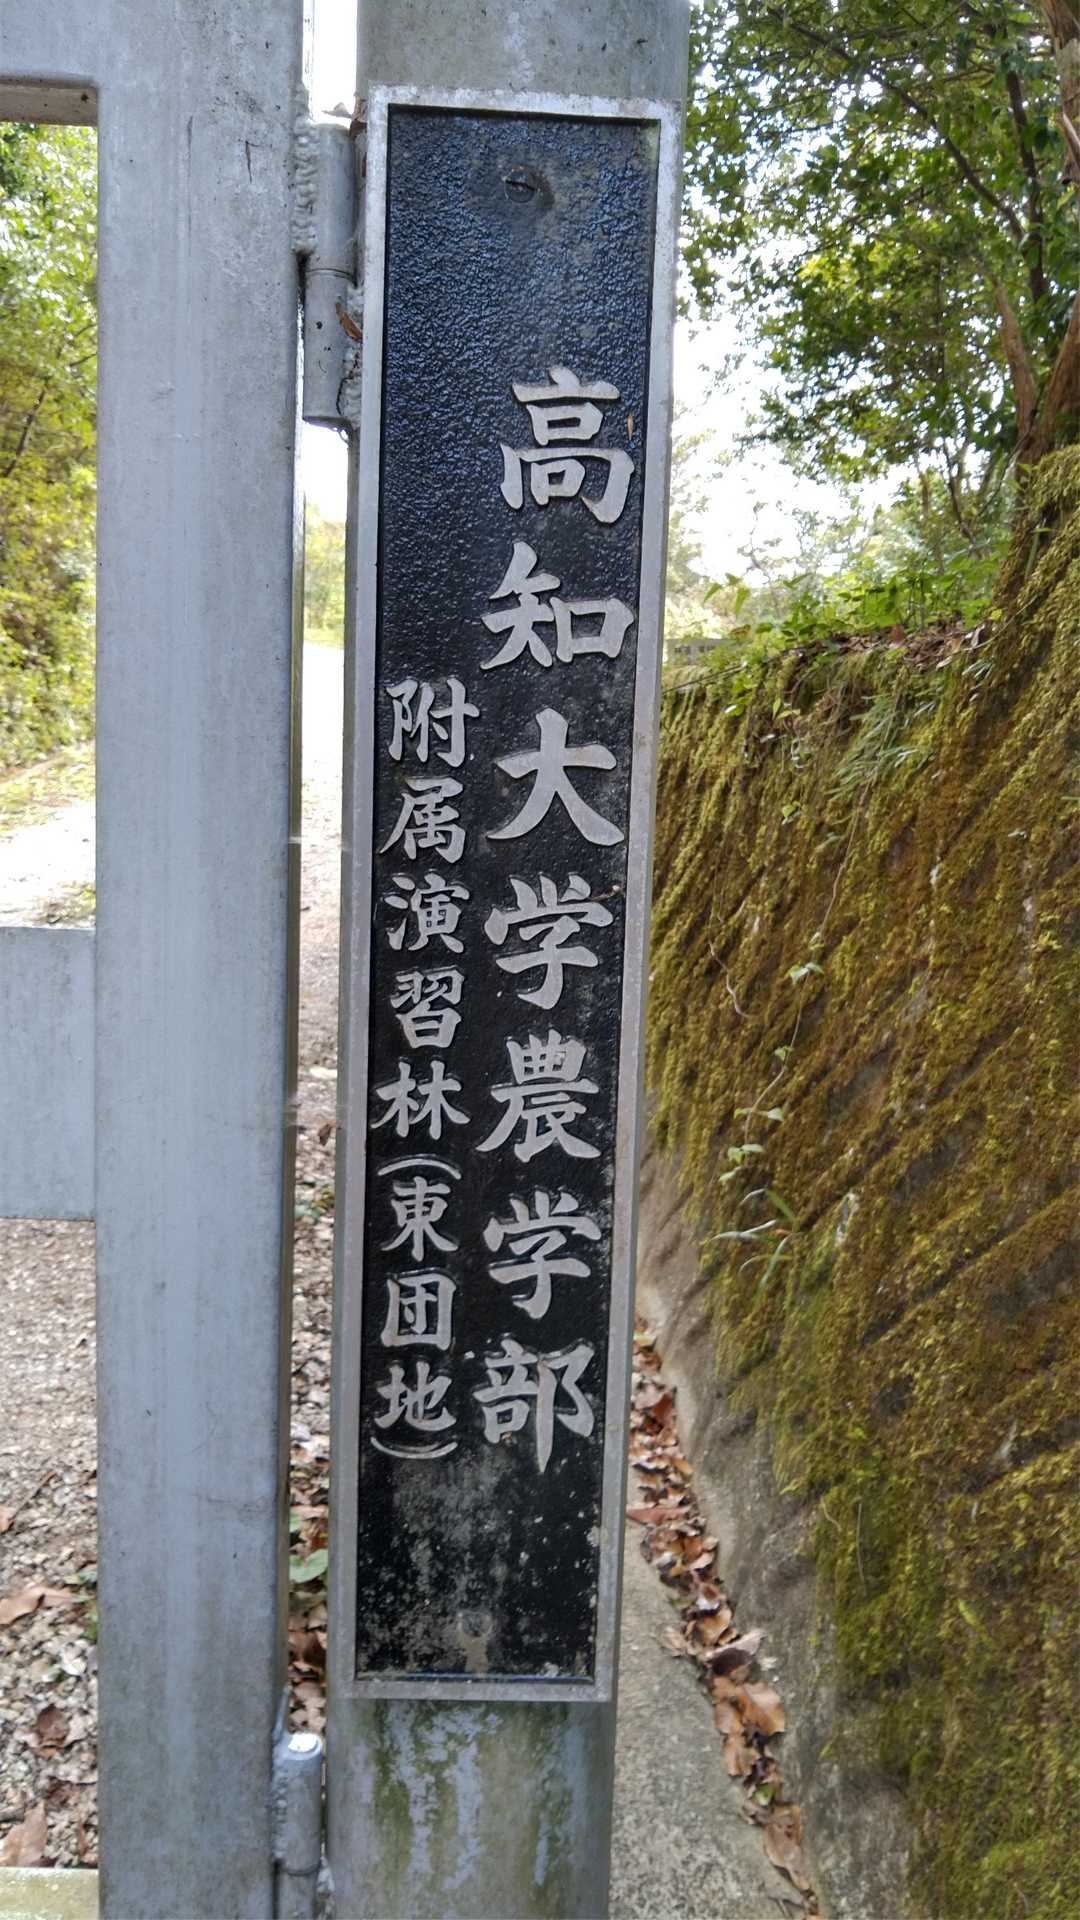 高知大学農学部
附属演習林(東団地)